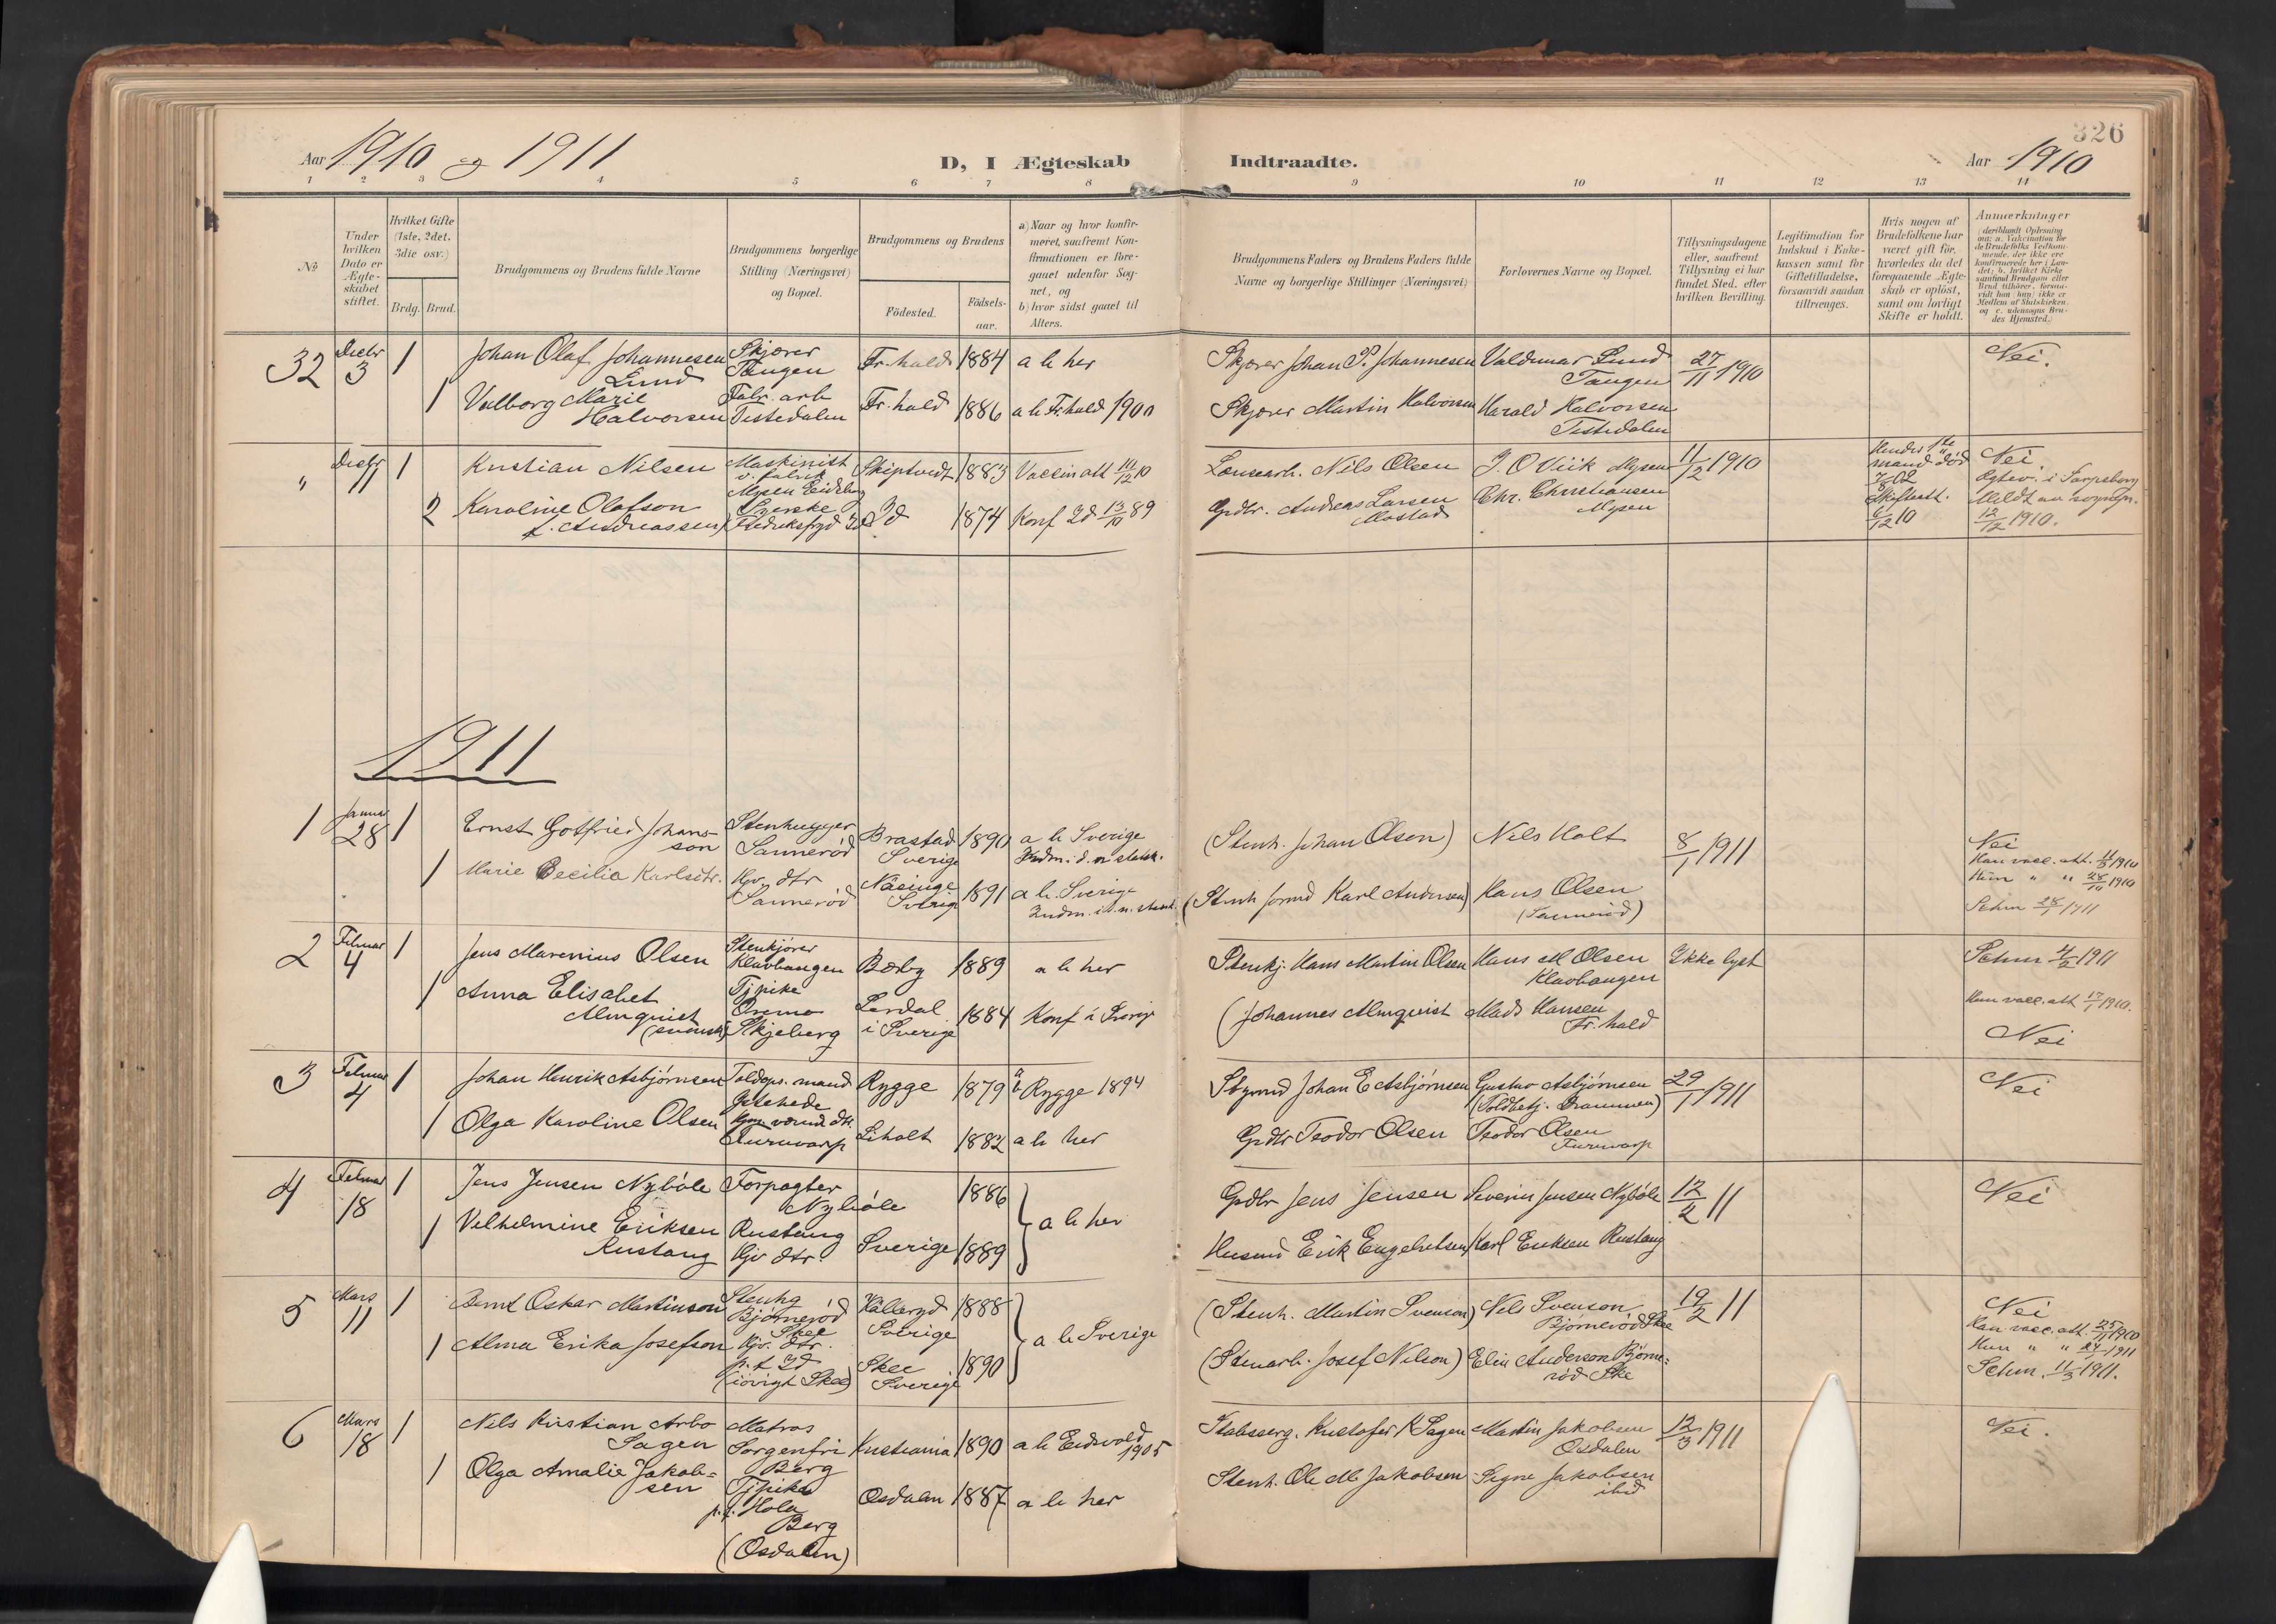 326
Aar 1910 og 1911
D, I Ægteskab
Indtraadte.
Aar 1910
1 2 3 4 5 6 7 8 9 10 11 12 13 14
No
Under hvilken Dato er Ægteskabet stiftet.
Hvilket Gifte (1ste, 2det, 3die osv.)
Brdg. Brud.
Brudgommens og Brudens fulde Navne
Brudgommens borgerlige Stilling (Næringsvei) og Bopæl.
Brudgommens og Brudens
Fødested.
Fødselsaar.
a) Naar og hvor konfirmeret, saafremt Konfirmationen er foregaaet udenfor Sognet, og
b) hvor sidst gaaet til Alters.
Brudgommens Faders og Brudens Faders fulde Navne og borgerlige Stillinger (Næringsvei)
Forlovernes Navne og Bopæl.
Tillysningsdagene eller, saafremt Tillysning ei har fundet Sted, efter hvilken Bevilling.
Legitimation for Indskud i Enkekassen samt for Giftetilladelse, forsaavidt saadan tiltrænges.
Hvis nogen af Brudefolkene har været gift før, hvorledes da det foregaaende Ægteskab er opløst, samt om lovligt Skifte er holdt.
Anmerkninger
32 Decbr 3 1
Johan Olaf Johannesen Lund
Skjærer Tangen
Fr.hald 1884 a b her
Skjærer Johan P. Johannesen
Valdemar Lund Tangen
27/11 1910
Nei.
1
Valborg Marie Halvorsen
Fabr. arb Tistedalen
Fr.hald 1886 a b Fr.hald 1900
Skjærer Martin Halvorsen
Harald Halvorsen Tistedalen
" Decbr 11 1
Kristian Nilsen
Maskinist v. fabrik Mysen Eidsberg
Skiptvedt 1883 Vaccinatt 10/12 10
Lensearb. Nils Olsen
J. O Viik Mysen
11/12 1910
Hendes 1ste mand død
Skifteatt. 6/12 10
Nei
Ægtev. i Sarpsborg
Meldt av sognepr. 12/12 1910.
2
Karoline Olafson f. Andreassen
Id 1874 Konf Id 13/10 89
Grdbr. Andreas Larsen Mostad
Chr. Christiansen Mysen
1911
1 Januar 28 1
Ernst Gotfried Johansson
Stenhugger Sannerød
Brastad Sverige 1890 a b Sverige
Indm. i d. n. statsk.
(Stenh. Johan Olson)
Nils Holt
8/1 1911
Nei
Han vacc. att. 11/3 1910
Hun " " 28/10 1910
Schm 28/1 1911
1
Marie Cecilia Karlsdtr.
Hjv. dtr Sannerød
Näsinge Sverige 1891 a b. Sverige
Indm. i d. n. statsk.
(Stenh formd Karl Andersen)
Hans Olsen (Sannerød)
2 Februar 4 1
Jens Marenius Olsen
Stenkjører Klavhaugen
Bærby 1889 a b her
Stenkj. Hans Martin Olsen
Hans M Olsen Klavhaugen
Ikke lyst
Schm 4/2 1911
1
Anna Elisabet Almquist (svensk)
Tjpike Oremo Skjeberg
Lerdal i Sverige 1884 Konf i Sverige
(Johannes Almquist
Mads Hansen Fr.hald
Hun vacc. att 17/1 1910.
Nei
3 Februar 4 1
Johan Henrik Asbjørnsen
Toldops. mand
Rygge 1879 a b Rygge 1894
Johan E Asbjørnsen
Gustav Asbjørnsen (Toldbetj. Drammen)
29/1 1911
Nei
1
Olga Karoline Olsen
Furuvarp
Liholt 1882 a b her
Grdbr Teodor Olsen
Teodor Olsen Furuvarp
4 Februar 18 1
Jens Jensen Nybøle
Forpagter Nybøle
1886
a b her
Grdbr Jens Jensen
Severin Jensen Nybøle
12/2 11
Nei
1
Vilhelmine Eriksen Rustang
Rustang Hjv dtr.
Sverige 1889
Husmd Erik Engebretsen
Karl Eriksen Rustang
5 Mars 11 1
Bernt Oskar Martinson
Stenhg Bjørnerød Skee
Källeryd Sverige 1888
a b Sverige
(Stenh. Martin Svenson)
Nils Svenson Bjørnerød Skee
19/2 11
Nei
Han vacc. att. 25/11 1910
Hun " " 27/1 1911
Schm. 11/3 1911.
1
Alma Erika Josefson
Hjv. dtr. p. t Id (iøvrigt Skee)
Skee Sverige 1890
(Stenarb. Josef Nilson)
Elin Anderson Bjørnerød Ske
6 Mars 18 1
Nils Kristian Arbo Sagen
Matros Sorgenfri Berg
Kristiania 1890 a b Eidsvold 1905
Stabsserg. Kristofer K Sagen
Martin Jakobsen Osdalen
12/3 1911
Nei.
1
Olga Amalie Jakobsen
Tjpike p.t. Hola Berg (Osdalen)
Osdalen 1887 a b her
Stenh. Ole M. Jakobsen
Signe Jakobsen ibid